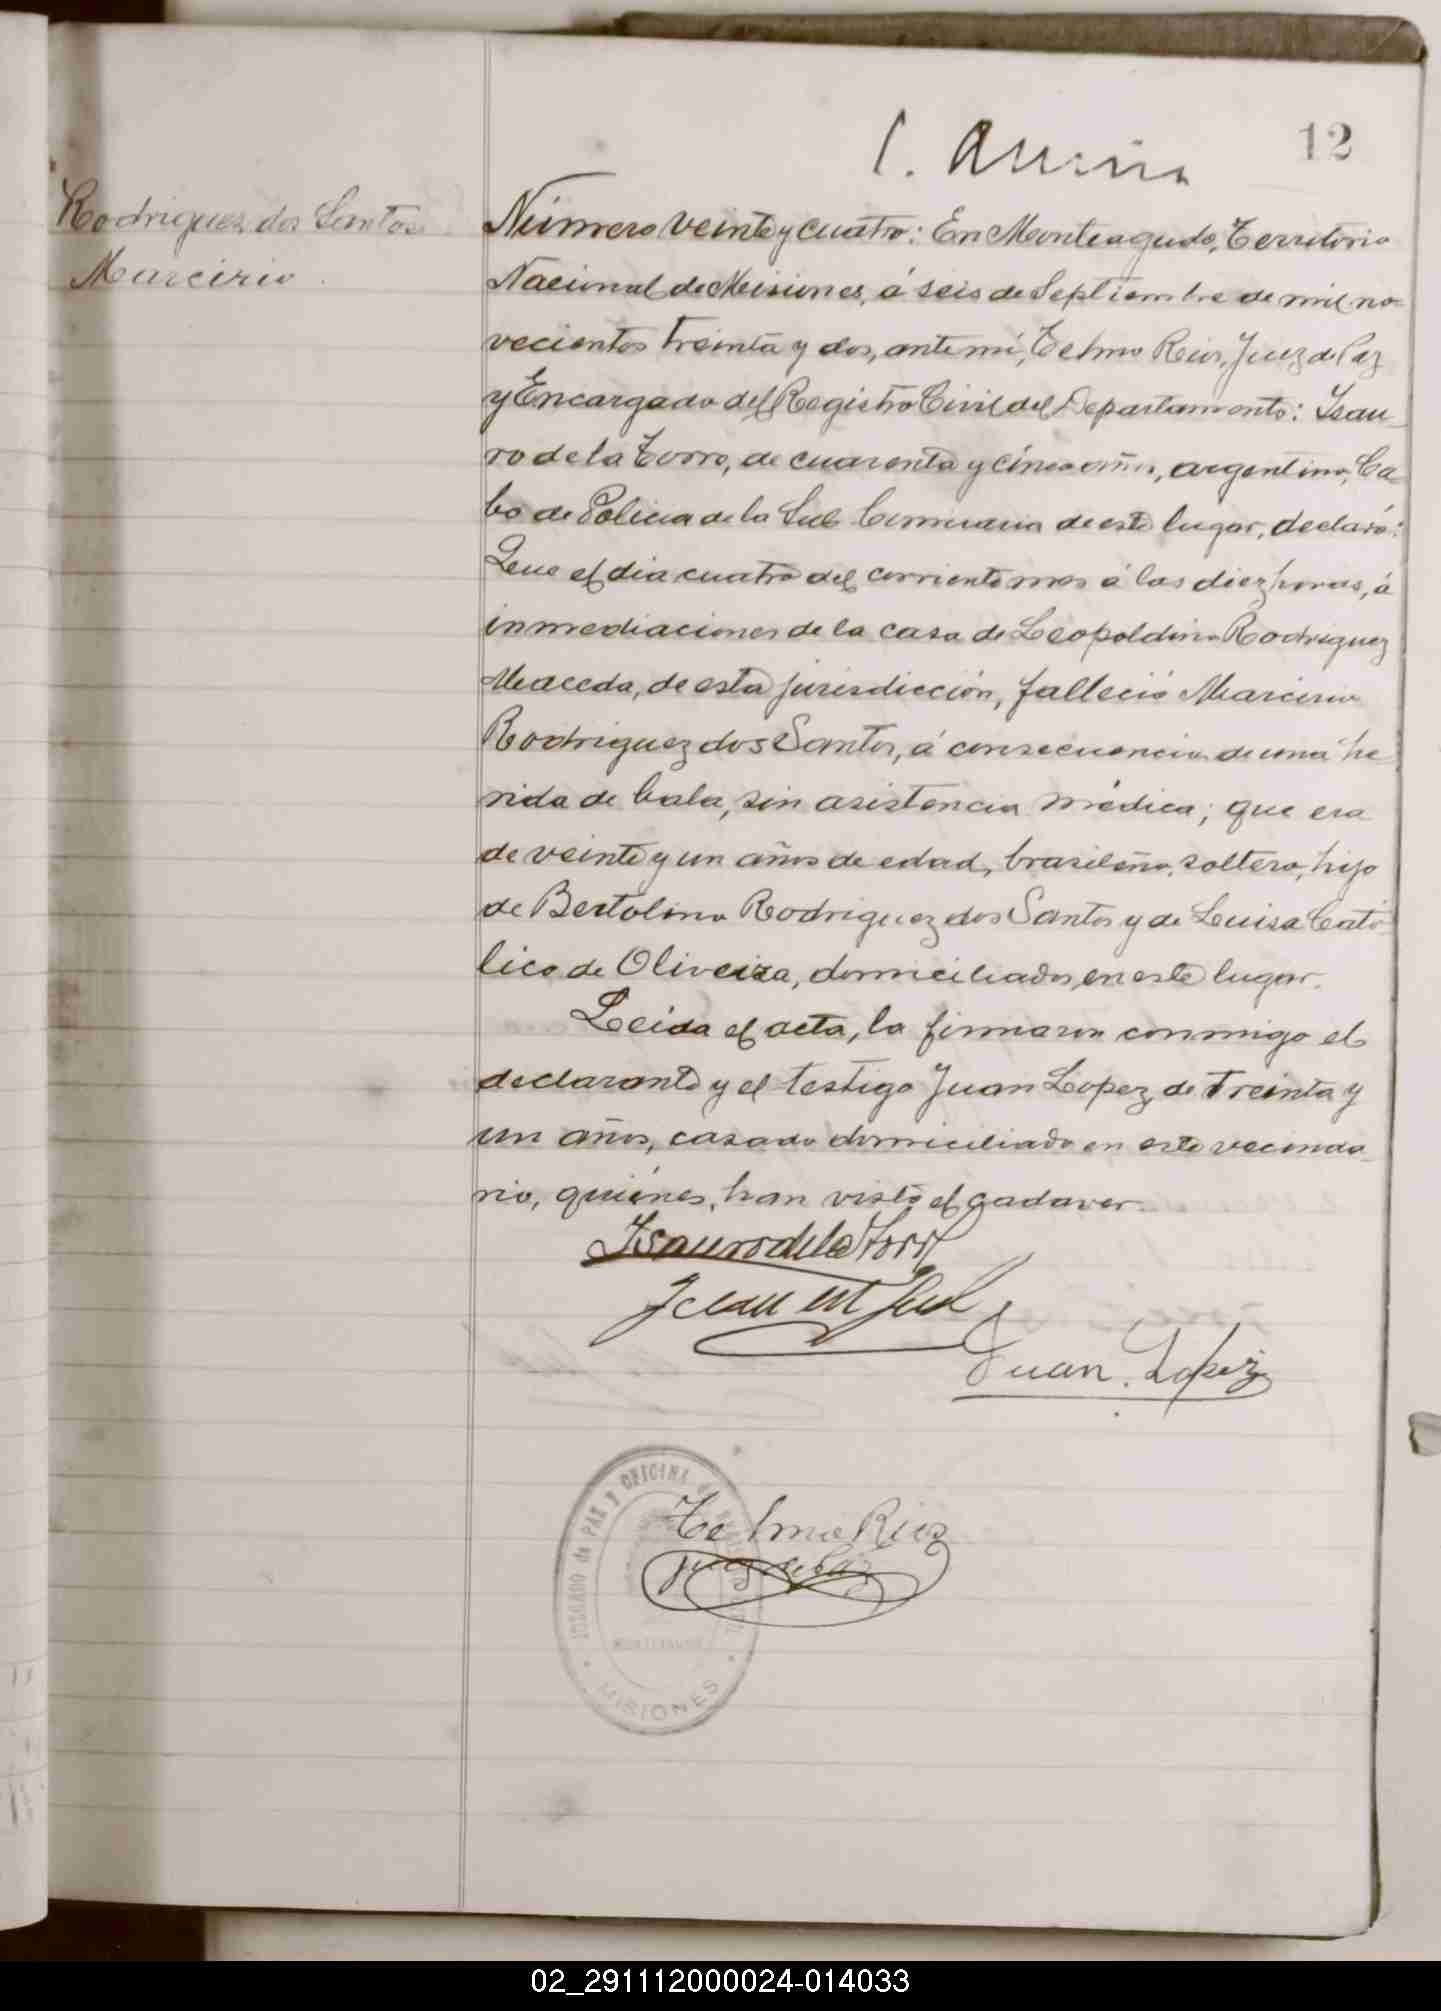 12
Rodriguez dos Santos
Marcirio.
Número veinte y cuatro: En Monteagudo, Territorio
Nacional de Misiones, á seis de Septiembre de mil no-
vecientos treinta y dos, ante mí, Telmo Rios, Juez de Paz
y Encargado del Registro Civil del Departamento: Isau-
ro de la Torre, de cuarenta y cinco años, argentino, Ca-
bo de Policia de la Sub Comisaria de este lugar, declaró:
Que el dia cuatro del corriente mes á las diez horas, á
inmediaciones de la casa de Leopoldino Rodriguez
Maceda, de esta jurisdicción, falleció Marcirio
Rodriguez dos Santos, á consecuencia de una he
rida de bala, sin asistencia médica; que era
de veinte y un años de edad, brasileño, soltero, hijo
de Bertolino Rodriguez dos Santos y de Luisa Cató-
lico de Oliveira, domiciliados en este lugar.
Leida el acta, la firmaron conmigo el
declarante y el testigo Juan Lopez, de treinta y
un años, casado domiciliado en este vecinda-
rio, quiénes, han visto el cadaver.
Isauro de la Torre
Juan Lopez
Telmo Rios
Juez de Paz
JUZGADO de PAZ Y OFICINA
MISIONES
02_291112000024-014033